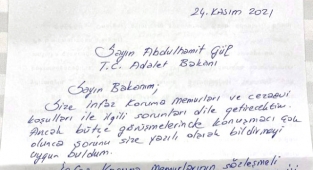 24. KASIM 2021
Sayın Abdulhamit Gül
T.C. Adalet Bakanı
Sayın Bakanım,
Size İnfaz Koruma memurları ve cezaevi
koşulları ile ilgili sorunları dile getirecektim.
Ancak bütçe görüşmelerinde konuşmacı çok
olunca sorunu size yazılı olarak bildirmeyi
uygun buldum.
Koruma Memurlarının sözleşmeli